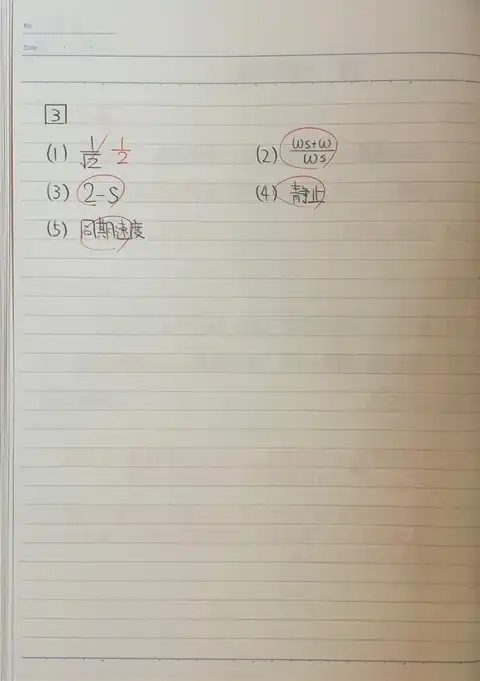 No.
Date
3
(1) 1/√2 1/2 (2) ωs+ω/ωs
(3) 2-s (4) 静止
(5) 同期速度